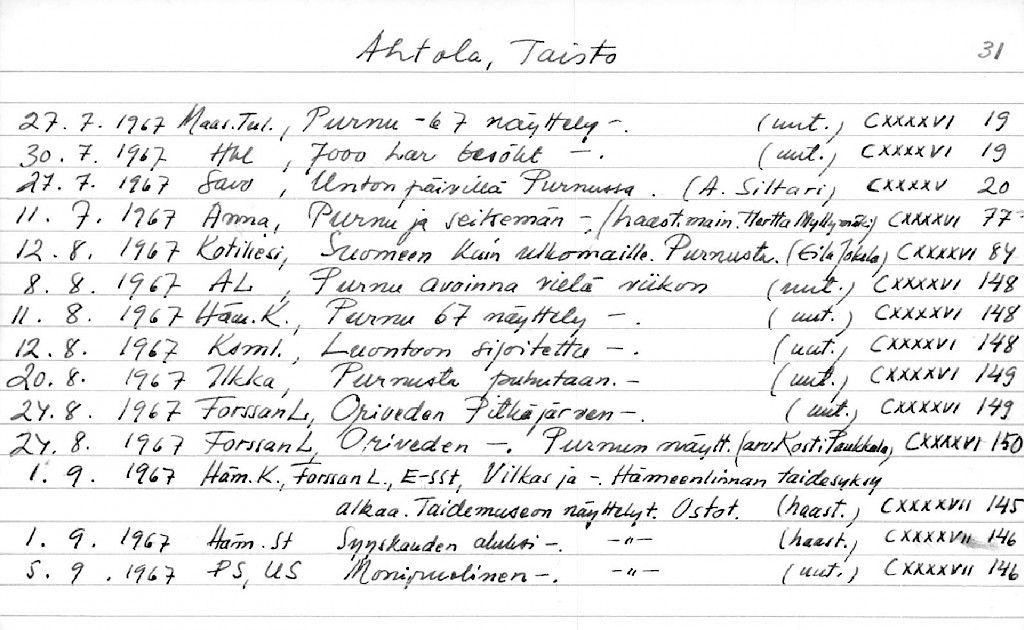 Ahtola, Taisto 31
27. 7. 1967 Maas.Tul., Purnu -67 näyttely -. (uut.) CXXXXVI 19
30. 7. 1967 Hbl , 7000 har besökt -. (uut.) CXXXXVI 19
27. 7. 1967 Savo , Unton päivillä Purnussa . (A. Siltari) CXXXXV 20
11. 7. 1967 Anna, Purnu ja seitsemän -. (haast.main. Hertta Myllymäki) CXXXXVI 77
12. 8. 1967 Kotiliesi, Suomeen kuin ulkomaille. Purnusta. (Eila Jokela) CXXXXVI 84
8. 8. 1967 AL , Purnu avoinna vielä viikon (uut.) CXXXXVI 148
11. 8. 1967 Häm.K., Purnu 67 näyttely -. (uut.) CXXXXVI 148
12. 8. 1967 Ksml., Luontoon sijoitettu -. (uut.) CXXXXVI 148
20. 8. 1967 Ilkka, Purnusta puhutaan. - (uut.) CXXXXVI 149
24. 8. 1967 ForssanL, Oriveden Pitkäjärven -. (uut.) CXXXXVI 149
24. 8. 1967 ForssanL, Oriveden -. Purnun näytt. (arv. Kosti Paukkala) CXXXXVI 150
1. 9. 1967 Häm.K., Forssan L., E-SSt, Vilkas ja -. Hämeenlinnan taidesyksy
alkaa. Taidemuseon näyttelyt. Ostot. (haast.) CXXXXVII 145
1. 9. 1967 Häm.St Syyskauden aluksi -. -"- (haast.) CXXXXVII 146
5. 9 . 1967 PS, US Monipuolinen -. -"- (uut.) CXXXXVII 146